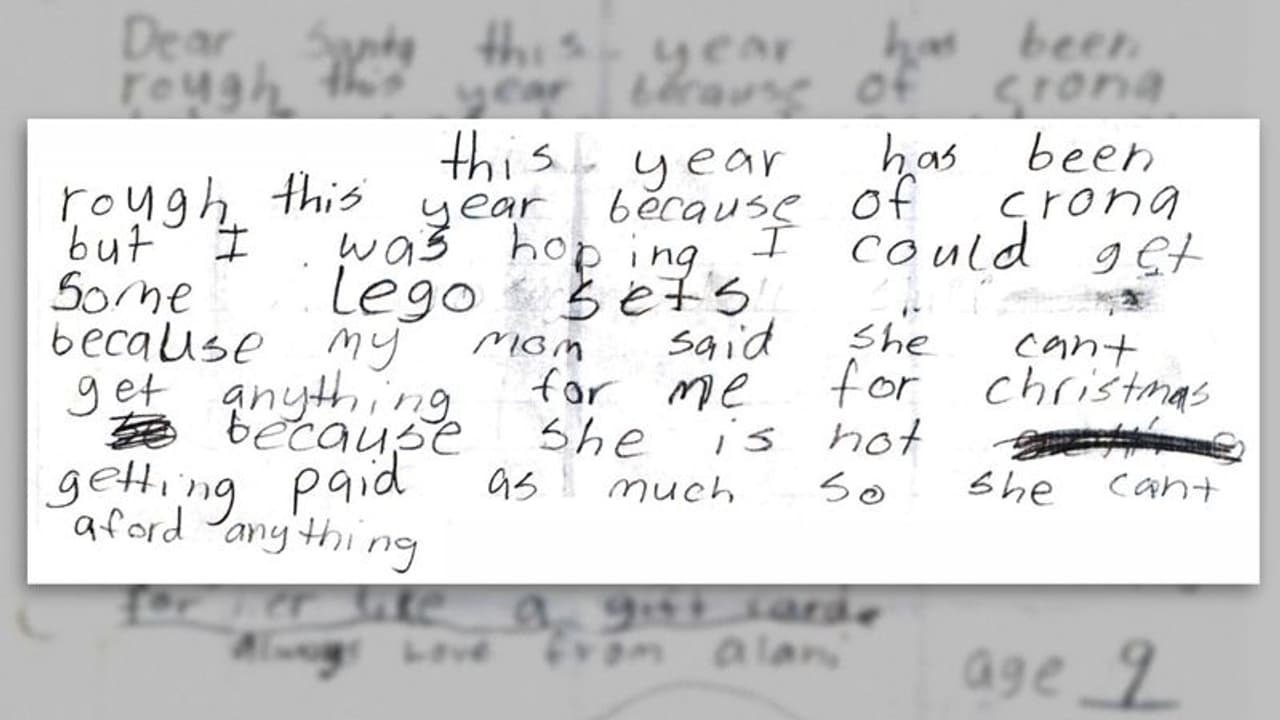 Dear Santa this year has been
rough this year because of crona
this year has been
rough this year because of crona
but I was hoping I could get
Some Lego sets
because my mom said she cant
get anything for me for christmas
because she is not
getting paid as much so she cant
aford anything
for her like a gift card
Always Love from alan
age 9